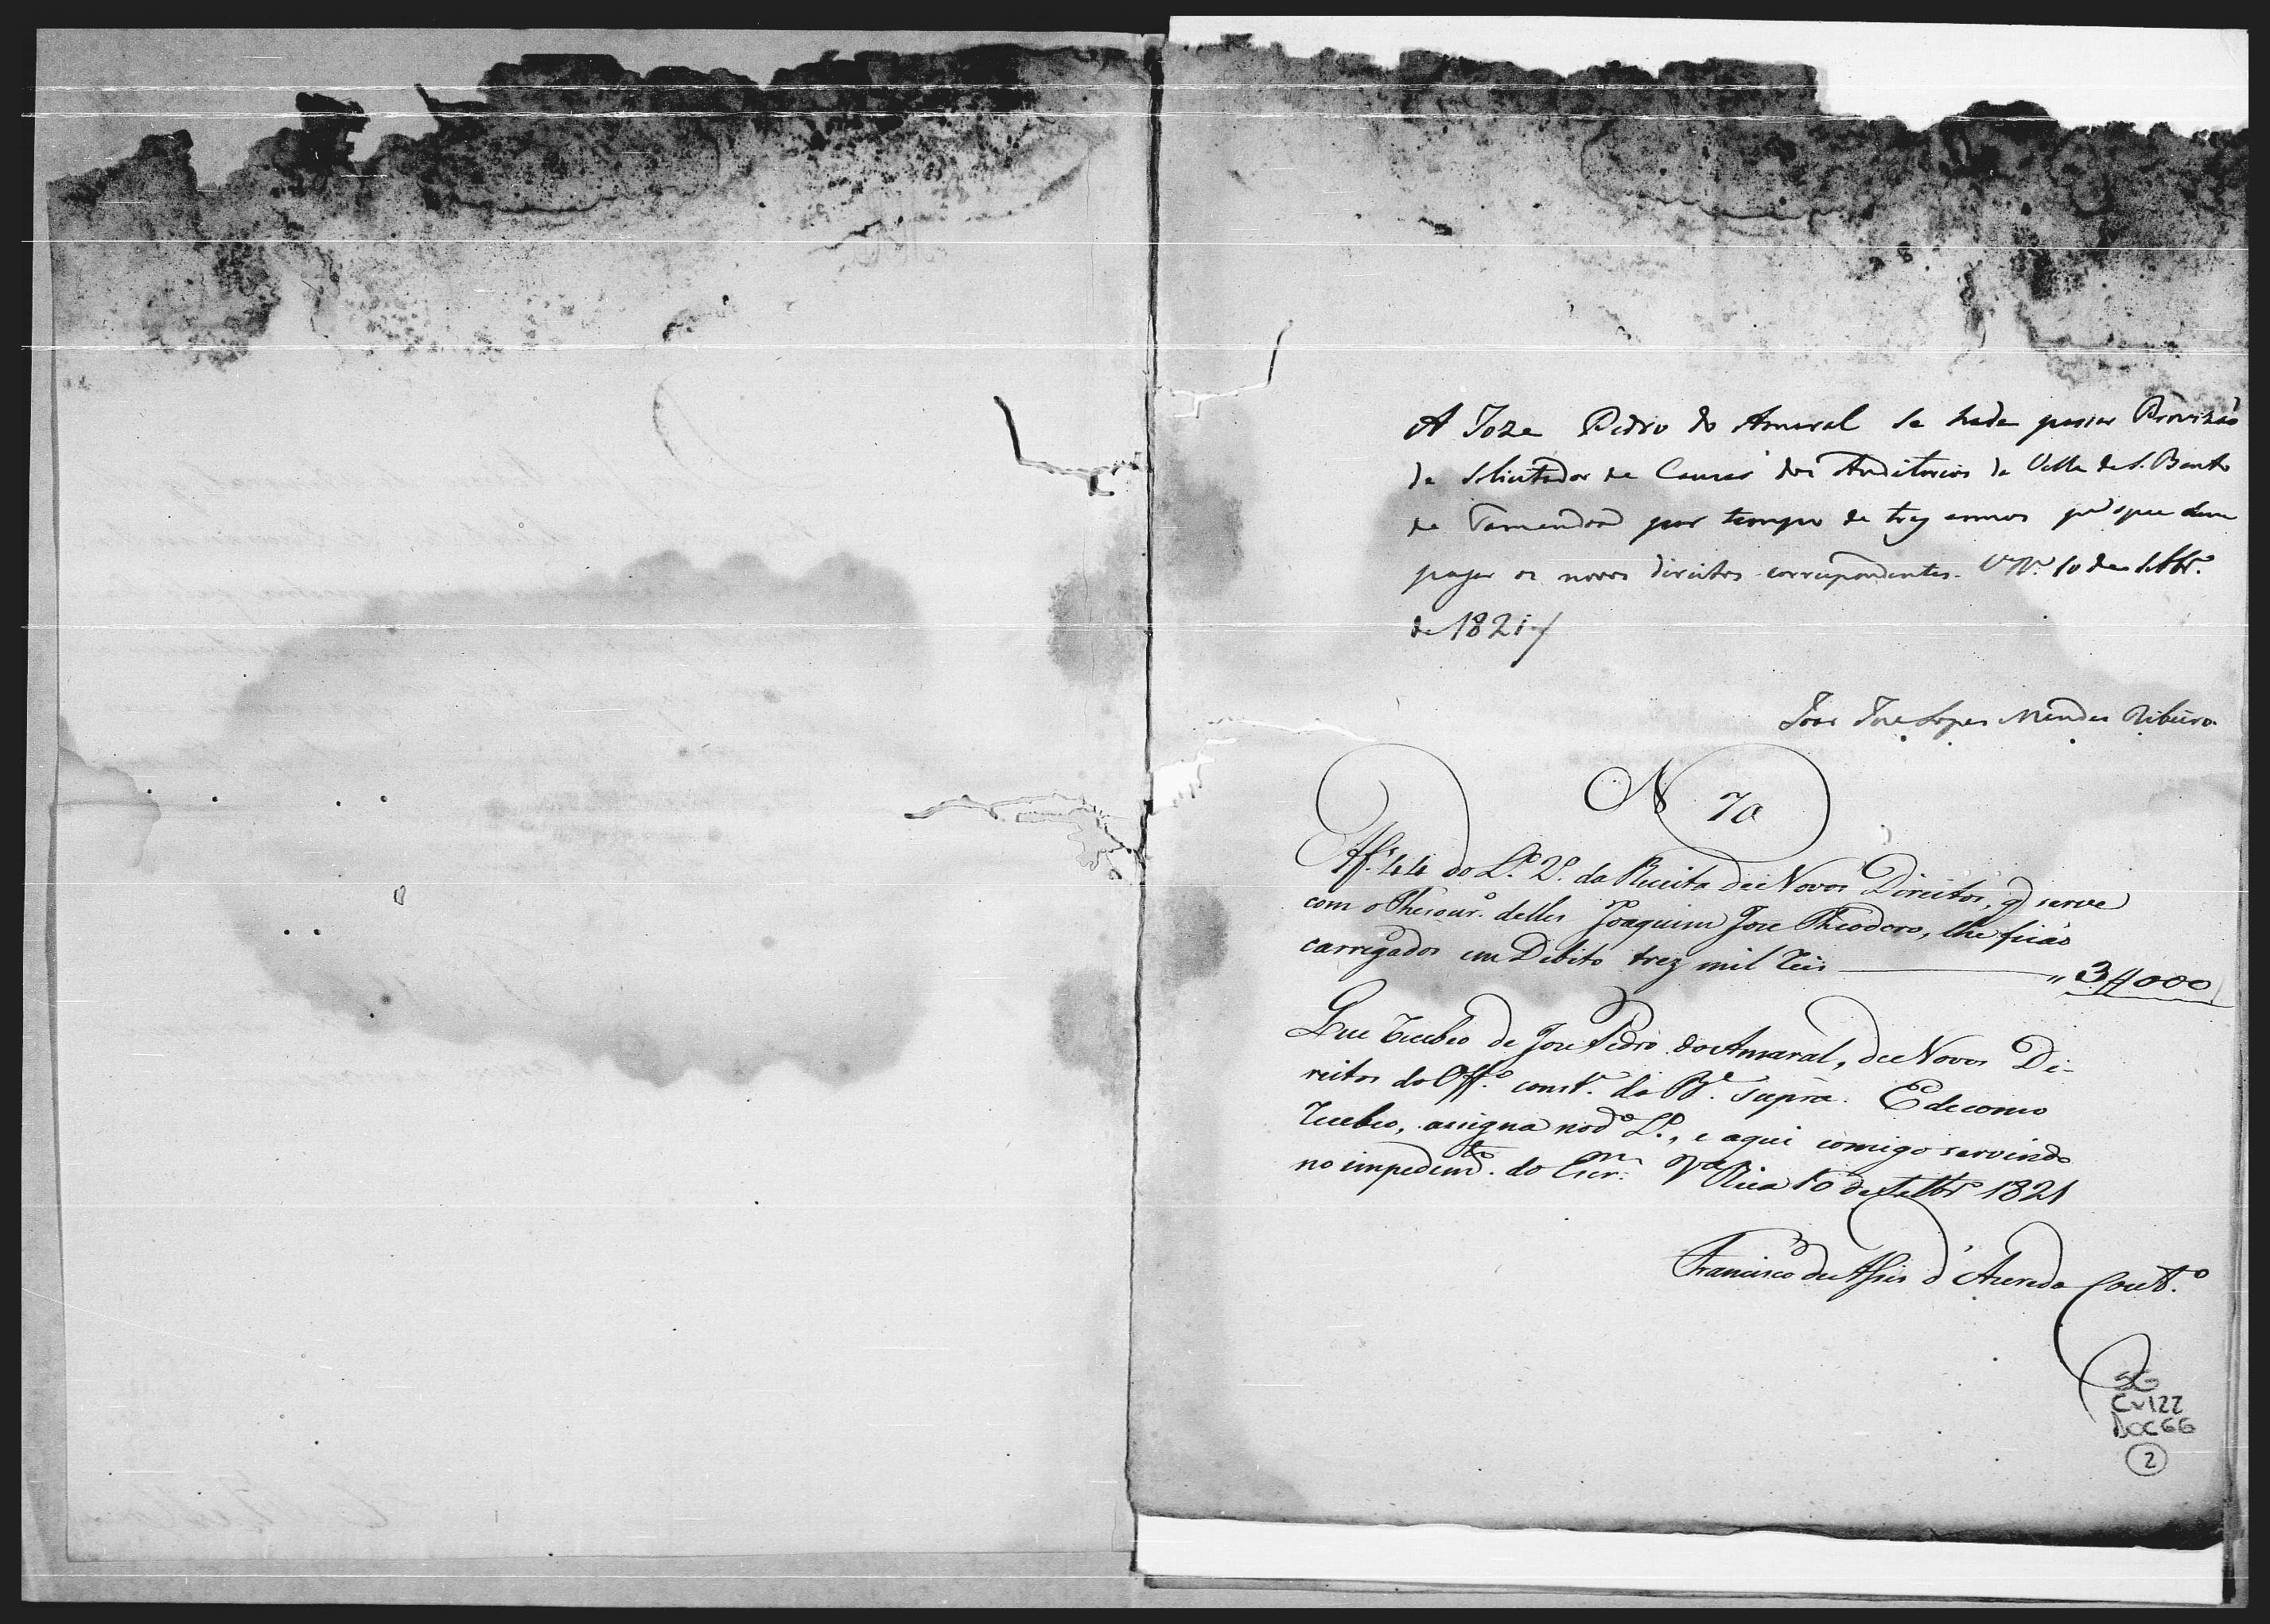 A Joze Pedro do Amaral se hade passar Provizão
de Solicitador de Cauzas dos Auditorios da Villa de S. Bento
de Tamanduá por tempo de trez annos p.ª o que deve
pagar os novos direitos correspondentes. V.ª R.ª 10 de Setbr.º
de 1821
João Joze Lopes Mendes Ribeiro
N 70
Af.s 44 do L.º 2.º da Receita de Novos Direitos, q serve
com o Thezour.º delles Joaquim Joze Theodoro, lhe ficão
carregados em Debito trez mil reis " 3#000
Que recebeo de Joze Pedro do Amaral, de Novos Di-
reitos do Off.º const.e do B.e supra. E de como
recebeo, assigna no d.º L.º, e aqui comigo servindo
no impedim.to do Escr.m V.ª Rica 10 de Setbr.º 1821
Francisco de Assis d'Azeredo Cout.º
SG
Cx122
DOC66
2